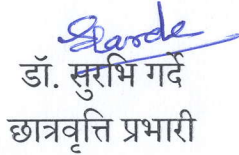 Garde
डॉ. सुरभि गर्दे
छात्रवृत्ति प्रभारी